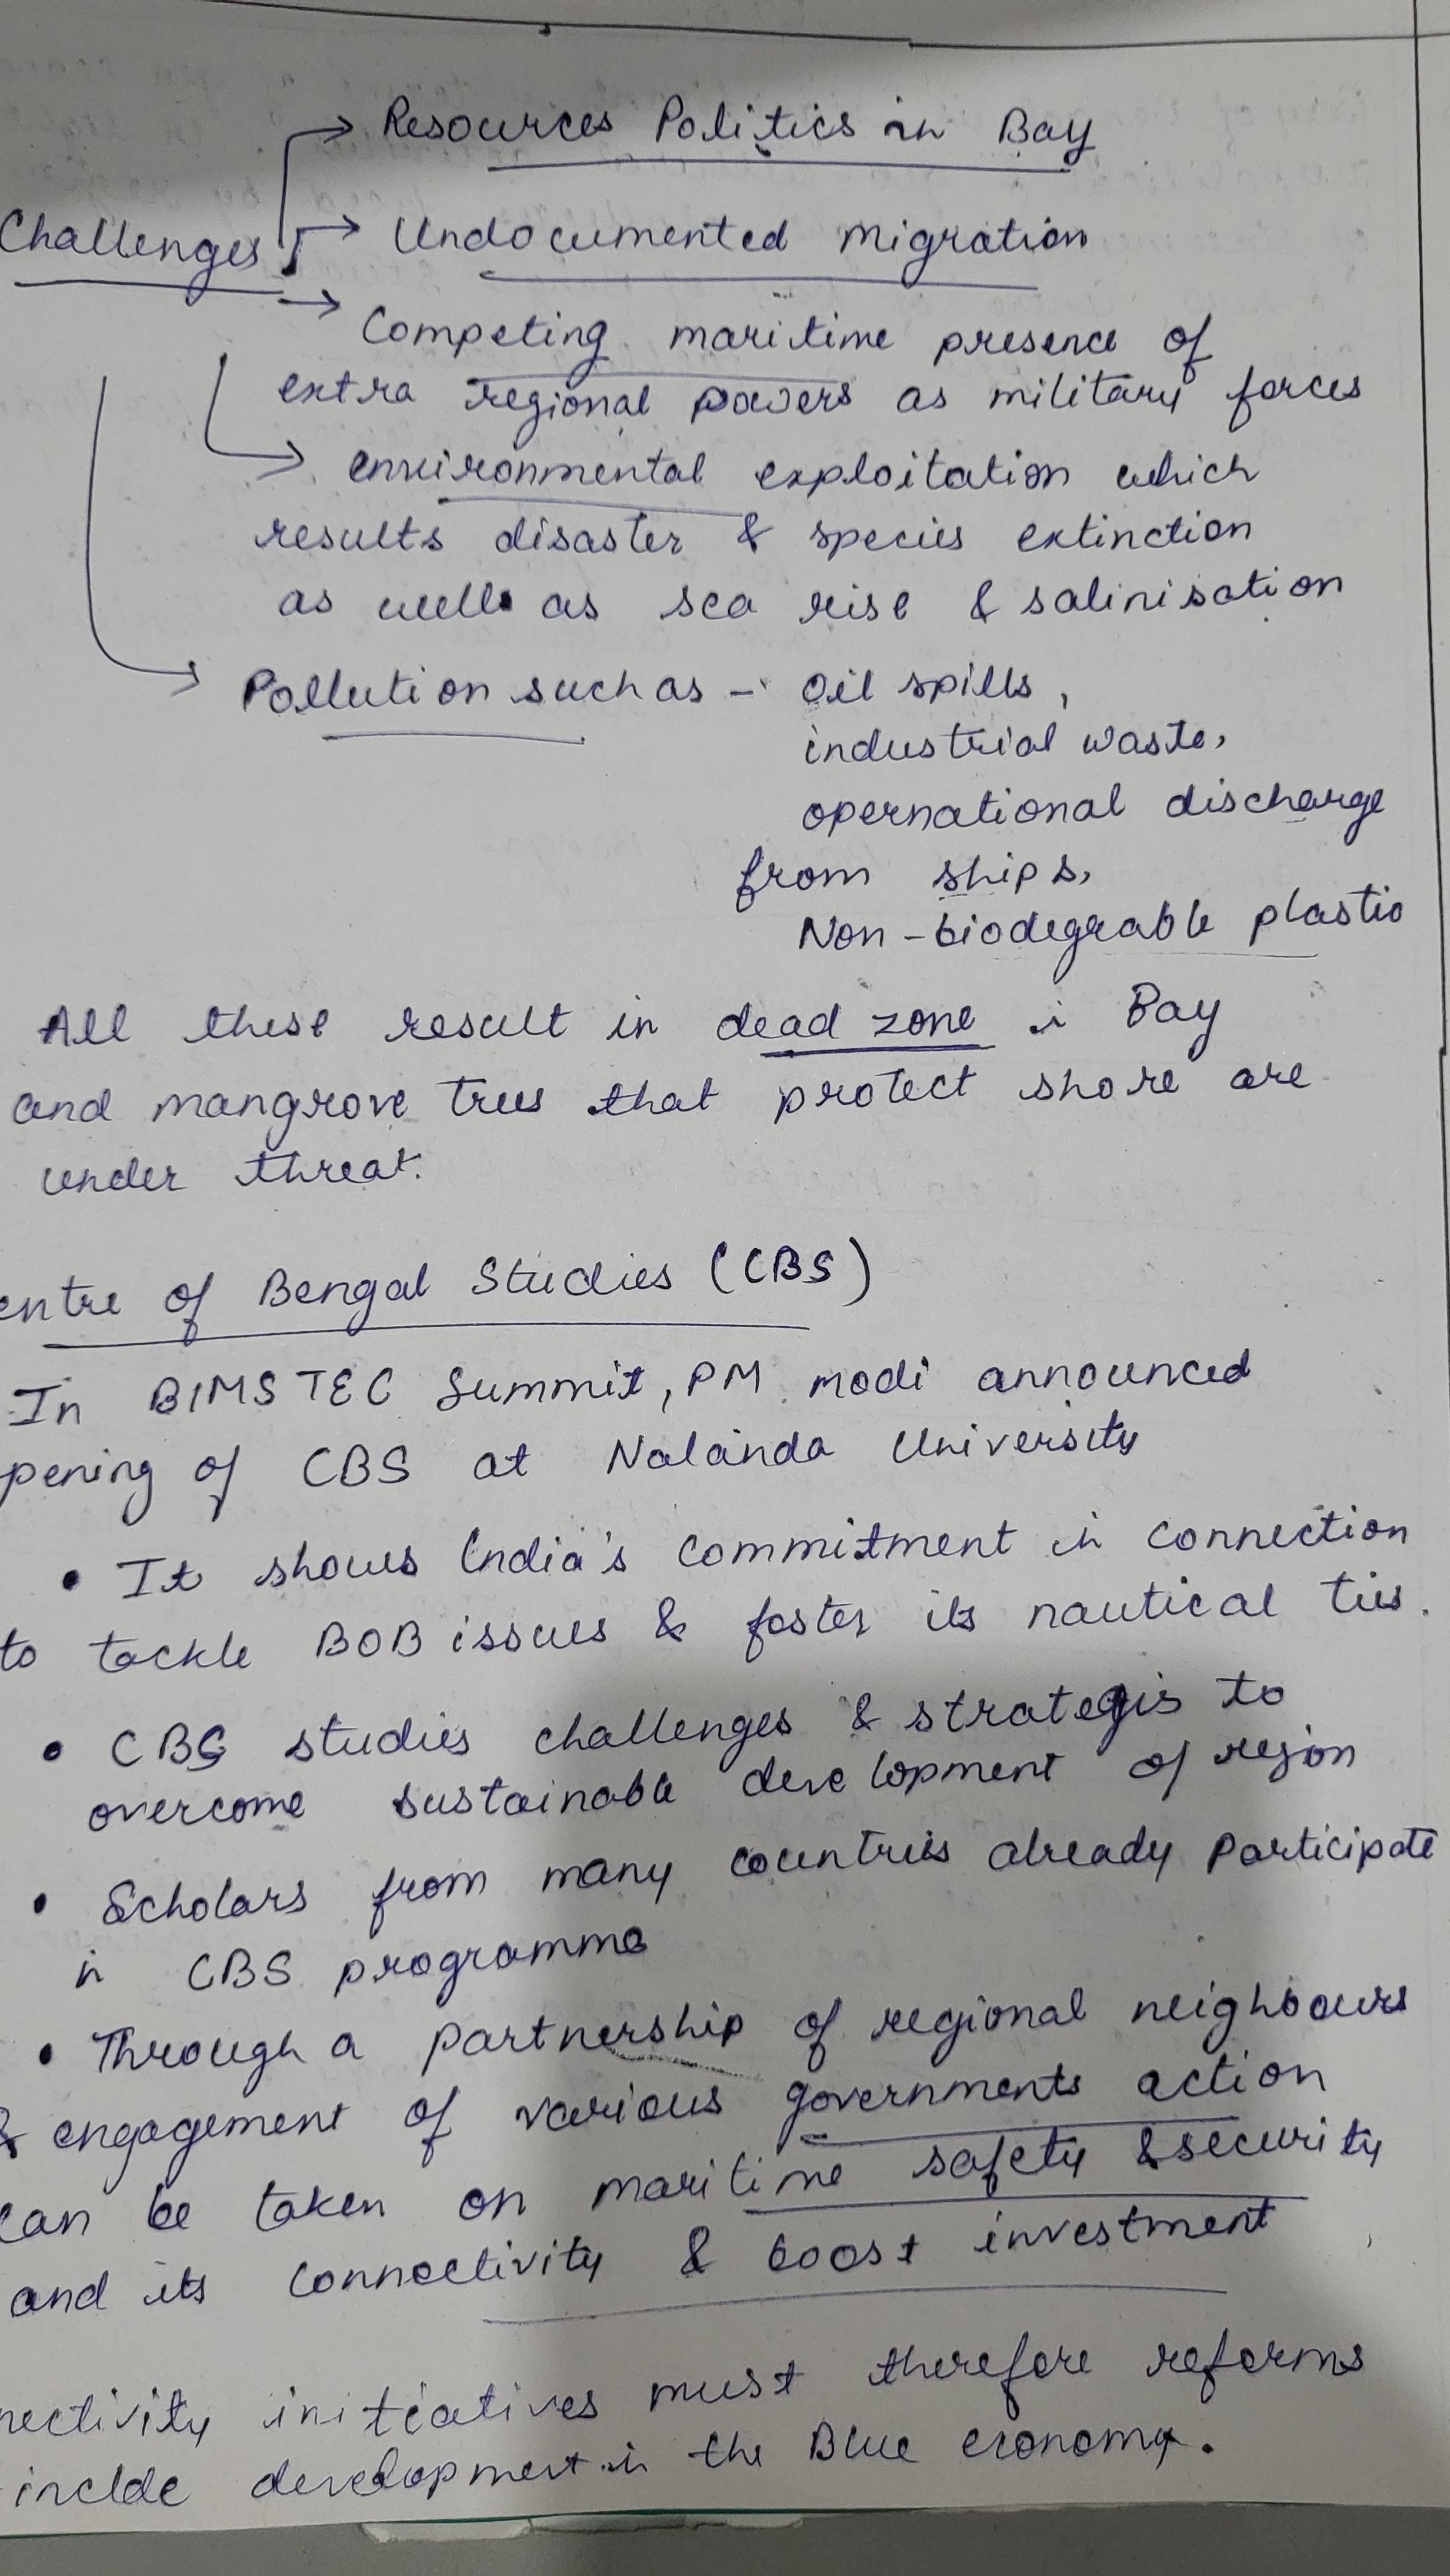 Resources Politics in Bay
Challenges → Undocumented migration
→ Competing maritime presence of
extra regional powers as military forces
→ environmental exploitation which
results disaster & species extinction
as well as sea rise & salinisation
→ Pollution such as - oil spills,
industrial waste,
opernational discharge
from ships,
Non-biodegrable plastic
All these result in dead zone in Bay
and mangrove trees that protect shore are
under threat.
entre of Bengal Studies (CBS)
In BIMSTEC Summit, PM modi announced
pening of CBS at Nalanda University
• It shows India's commitment in connection
to tackle BOB issues & foster its nautical ties.
• CBS studies challenges & strategis to
overcome sustainable development of regjon
• Scholars from many countries already participate
in CBS programme
• Through a partnership of regional neighbours
& engagement of various governments action
can be taken on maritime safety & security
and its connectivity & boost investment
nectivity initiatives must therefore reforms
inclde development in the Blue economy.